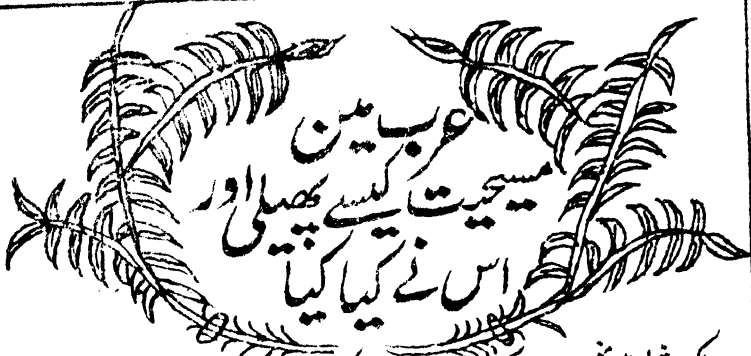 عرب مین
مسیحیت کیسے پھیلی اور
اس نے کیا کیا